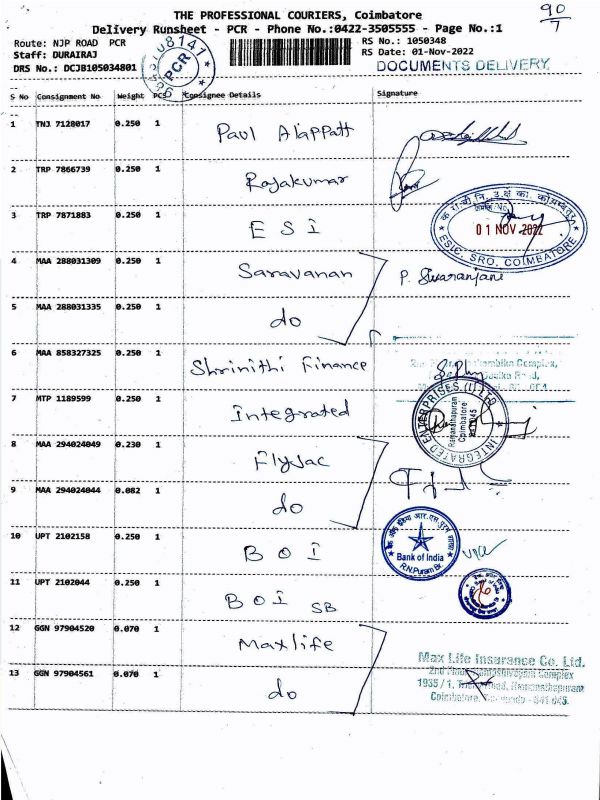 THE PROFESSIONAL COURIERS, Coimbatore
90/7
Delivery Runsheet - PCR - Phone No.:0422-3505555 - Page No.:1
Route: NJP ROAD PCR
RS No.: 1050348
Staff: DURAIRAJ
RS Date: 01-Nov-2022
DRS No.: DCJB105034801
DOCUMENTS DELIVERY
PCR
S No Consignment No Weight PCS Consignee Details Signature
1 TNJ 7128017 0.250 1 Paul Alappatt
2 TRP 7866739 0.250 1 Rajakumar
3 TRP 7871883 0.250 1 ESI
01 NOV 2022
ESIC. SRO. COIMBATORE
4 MAA 288031309 0.250 1 Saravanan P. Swaranjani
5 MAA 288031335 0.250 1 do
6 MAA 858327325 0.250 1 Shrinithi Finance
7 MTP 1189599 0.250 1 Integrated
INTEGRATED ENTERPRISES (I) LTD
Ramanathapuram
Coimbatore
8 MAA 294024049 0.230 1 Flyjac
9 MAA 294024044 0.082 1 do
10 UPT 2102158 0.250 1 BOI
Bank of India
R.N.Puram Br.
11 UPT 2102044 0.250 1 BOI SB
12 GGN 97904520 0.070 1 Maxlife
Max Life Insurance Co. Ltd.
13 GGN 97904561 0.070 1 do